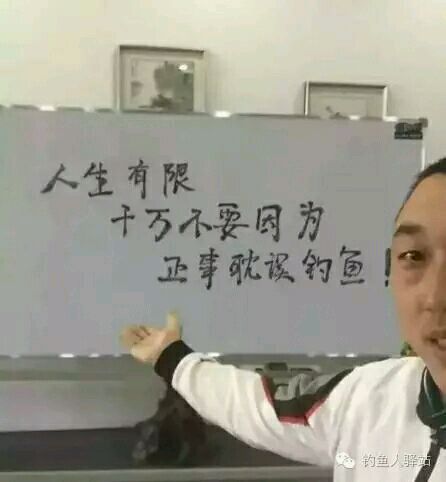 人生有限
千万不要因为
正事耽误钓鱼！
钓鱼人驿站